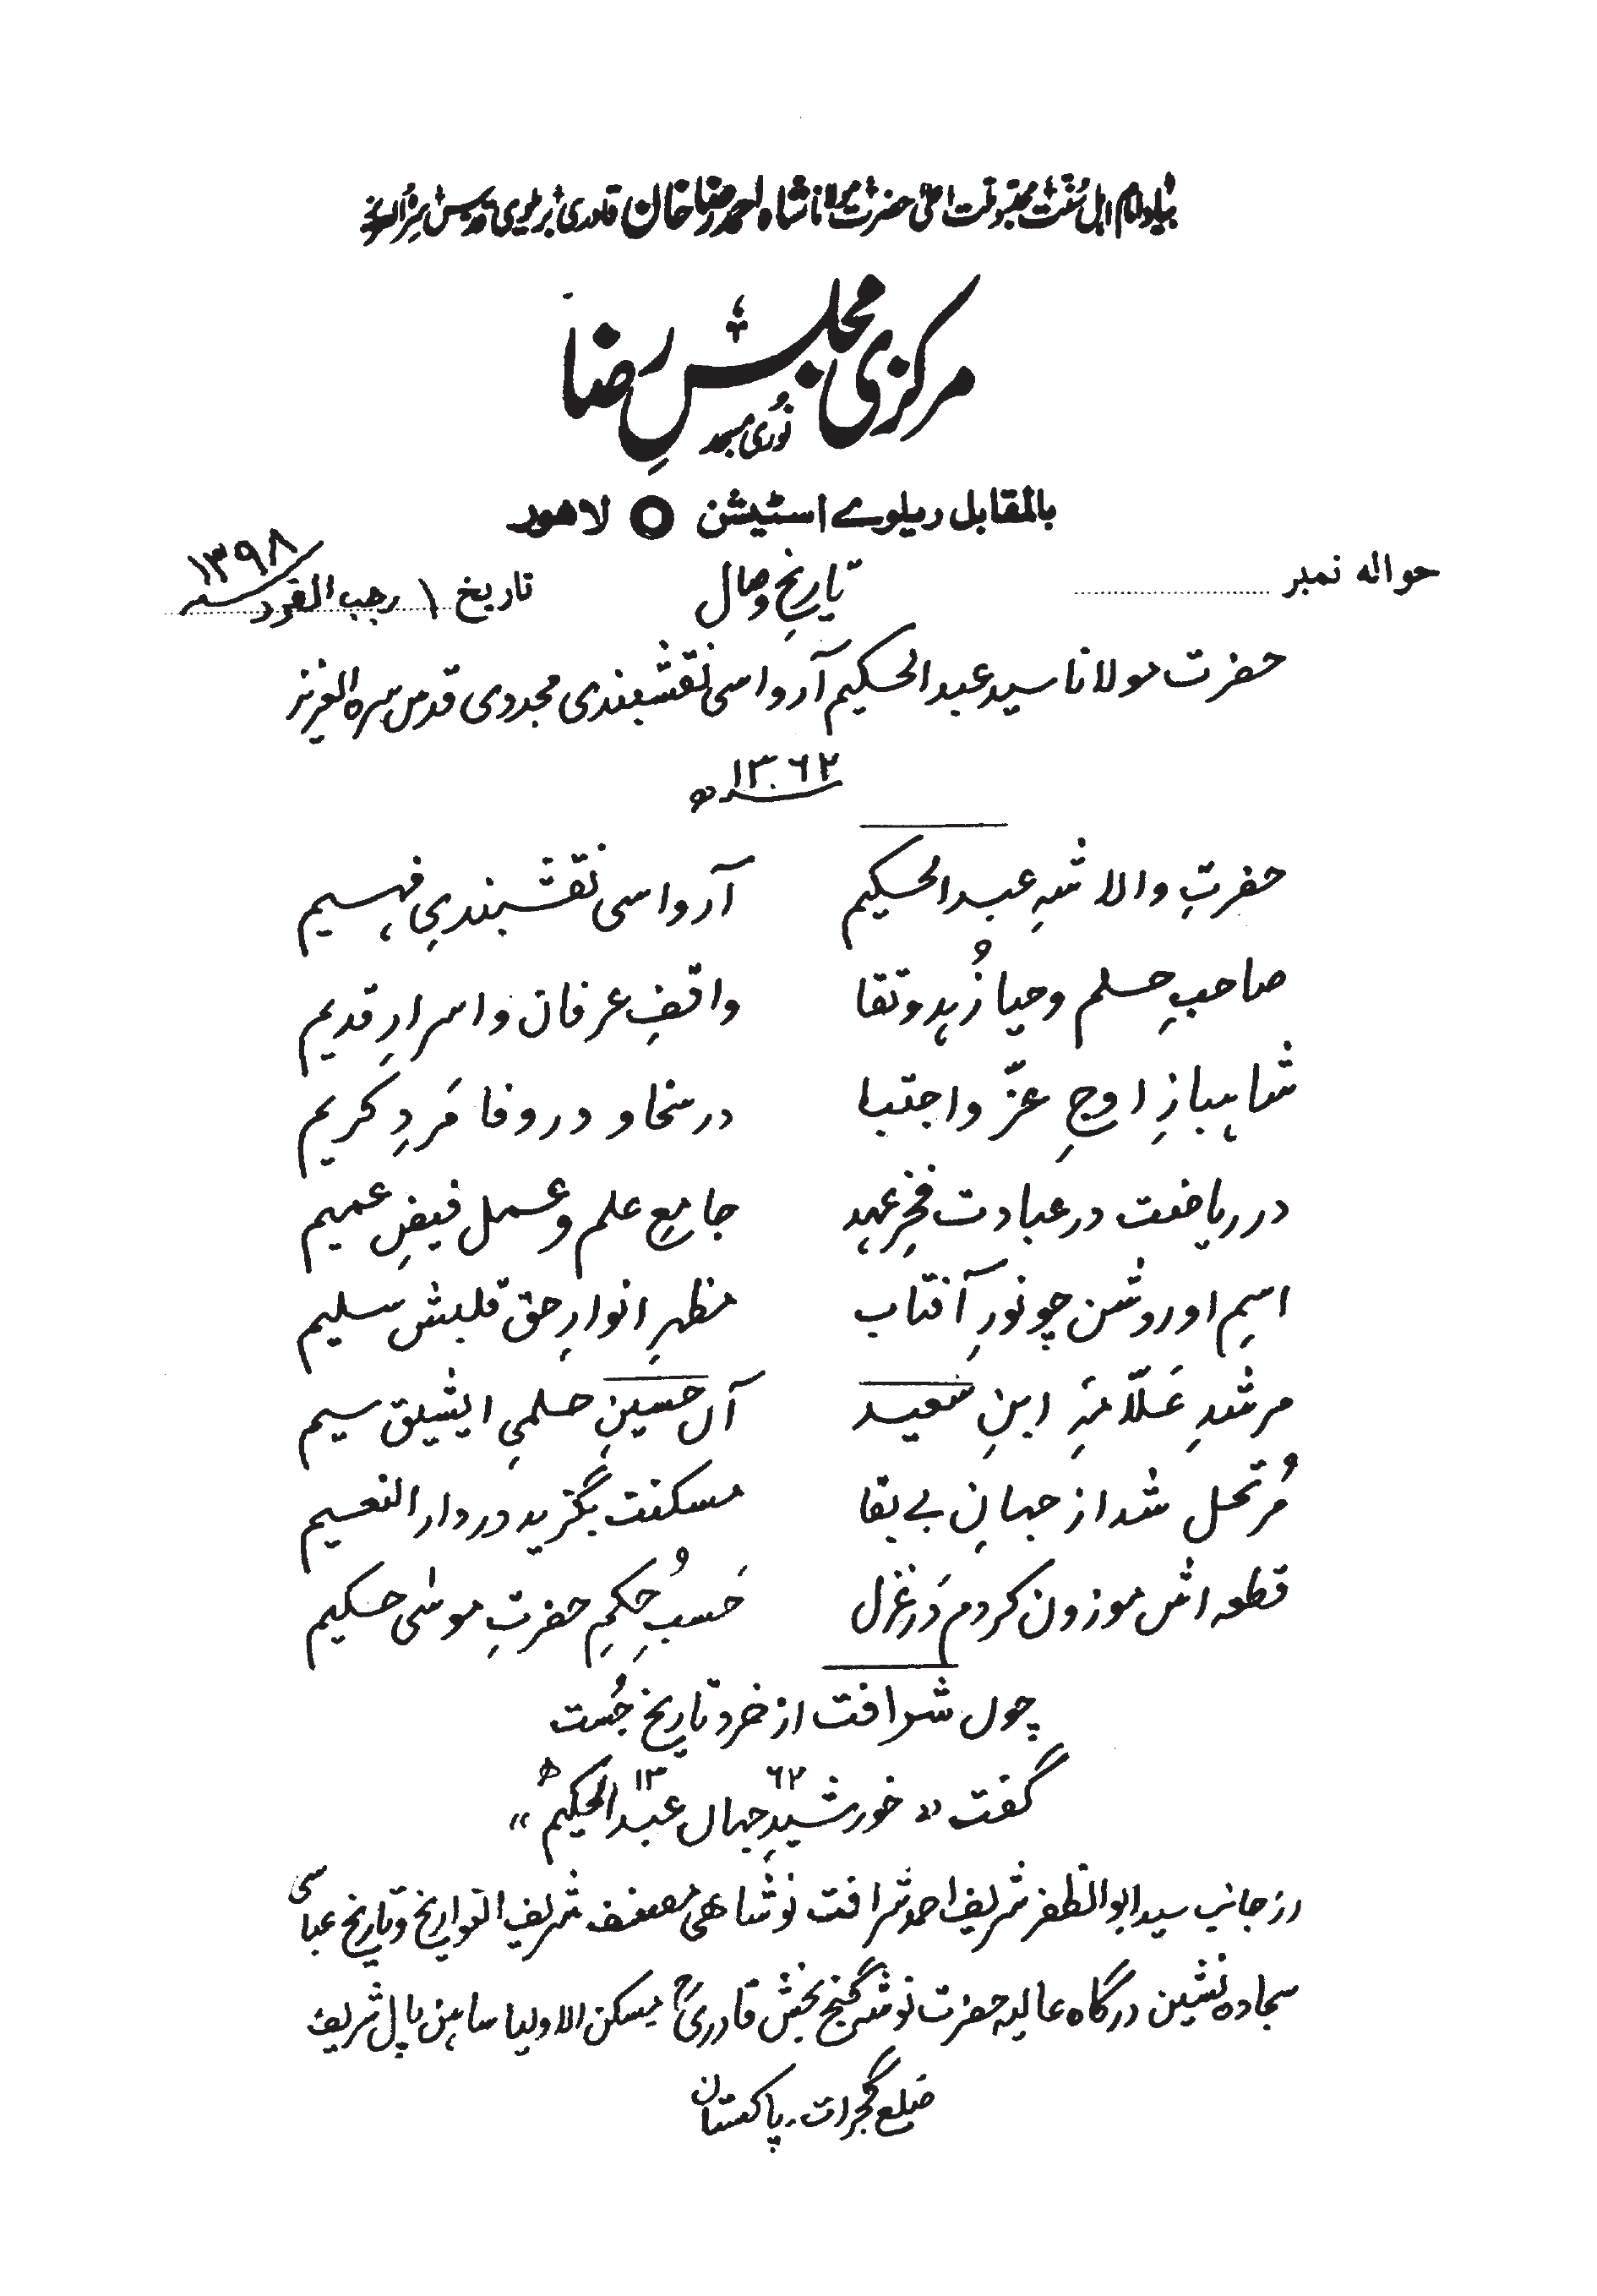 بیاد امام اہل سُنّت مجدد ملت اعلیٰ حضرت مولانا شاہ احمد رضا خان قادری بریلوی قدس سِرّہ العزیز
مرکزی مجلسِ رضا
نوُری مسجد
بالمقابل ریلوے اسٹیشن لاھور
حوالہ نمبر
تاریخ ۱ رجب الفرد ۱۳۹۸
تاریخِ وصال
حضرت مولانا سید عبدالحکیم آرواسی نقشبندی مجددی قدس سرہ العزیز
۱۳۶۲ھ
حضرتِ والا شہِ عبدالحکیم آرواسی نقشبندیِ فہیم
صاحبِ حلم و حیا زُہد و تقا واقفِ عرفان و اسرارِ قدیم
شاہبازِ اوجِ عزّ و اجتبا در سخا و در وفا مَردِ کریم
در ریاضت در عبادت فخرِ عہد جامعِ علم و عمل فیضِ عمیم
اسمِ او روشن چو نورِ آفتاب مظہرِ انوارِ حق قلبش سلیم
مرشدِ عَلّامۂِ ابنِ سعید آں حسینِ حلمیِ ایشیق سیم
مُرتحل شد از جہانِ بے بقا مسکنت بگزید در دار النعیم
قطعہ اش موزون کردم دَر غزل حَسبِ حُکمِ حضرتِ موسٰی حکیم
چوں شرافت از خرد تاریخ جُست
گفت "خورشیدِ جہاں عبدالحکیم" ۱۳۶۲ھ
از جانب سید ابوالظفر شریف احمد شرافت نوشاھی مصنف شریف التواریخ و تاریخ عباسی
سجادہ نشین درگاہ عالیہ حضرت نوشہ گنج بخش قادریؒ مسکن الاولیا ساہن پال شریف
ضلع گجرات - پاکستان